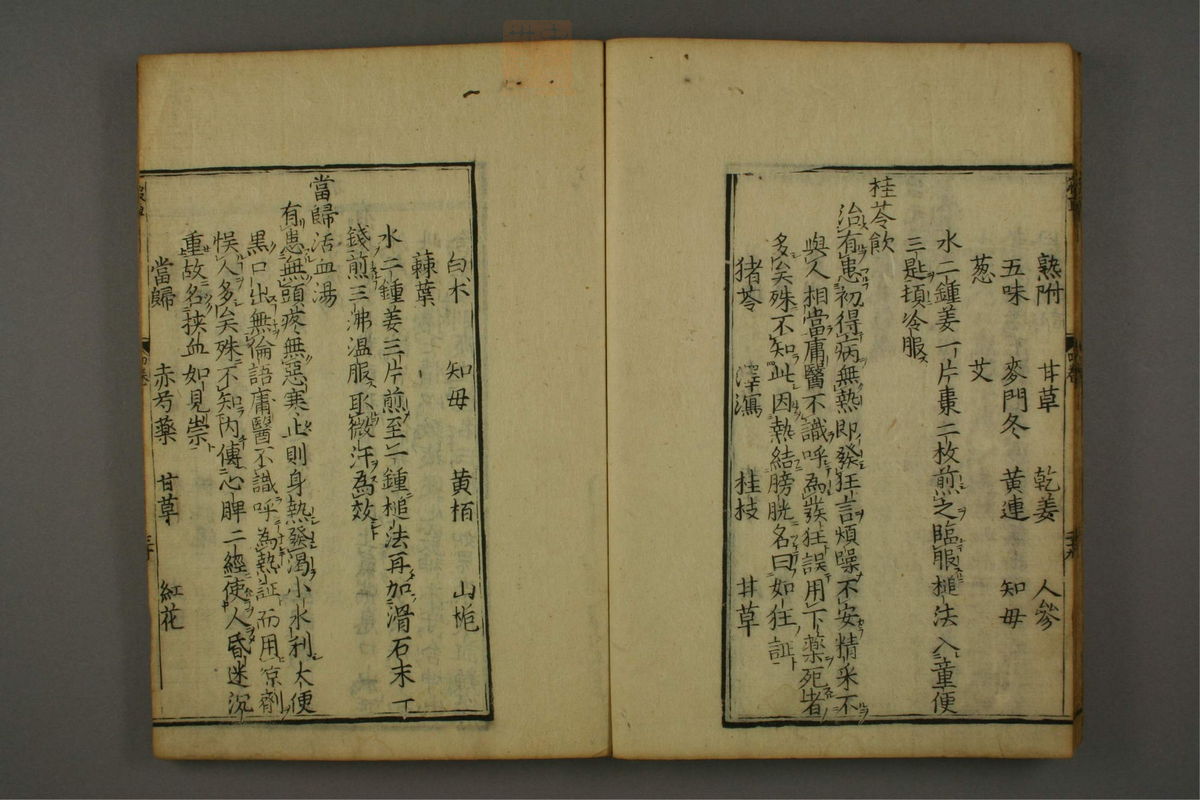 熟附 甘草 乾姜 人參
五味 麥門冬 黃連 知母
葱 艾
水二鍾姜一片棗二枚煎之臨服槌法入童便
三匙頓冷服
桂苓飲
治有患初得病無熱即發狂言煩躁不安精采不
與人相當庸醫不識呼為發狂誤用下藥死者
多矣殊不知此因熱結膀胱名曰如狂証
猪苓 澤瀉 桂枝 甘草
白朮 知母 黃栢 山梔
蘇葉
水二鍾姜三片煎至一鍾槌法再加滑石末一
錢煎三沸温服取微汗為效
當歸活血湯
有患無頭疼無惡寒止則身熱發渴小水利大便
黑口出無倫語庸醫不識呼為熱証而用凉劑
悞人多矣殊不知內傳心脾二經使人昏迷沉
重故名挾血如見祟
當歸 赤芍藥 甘草 紅花